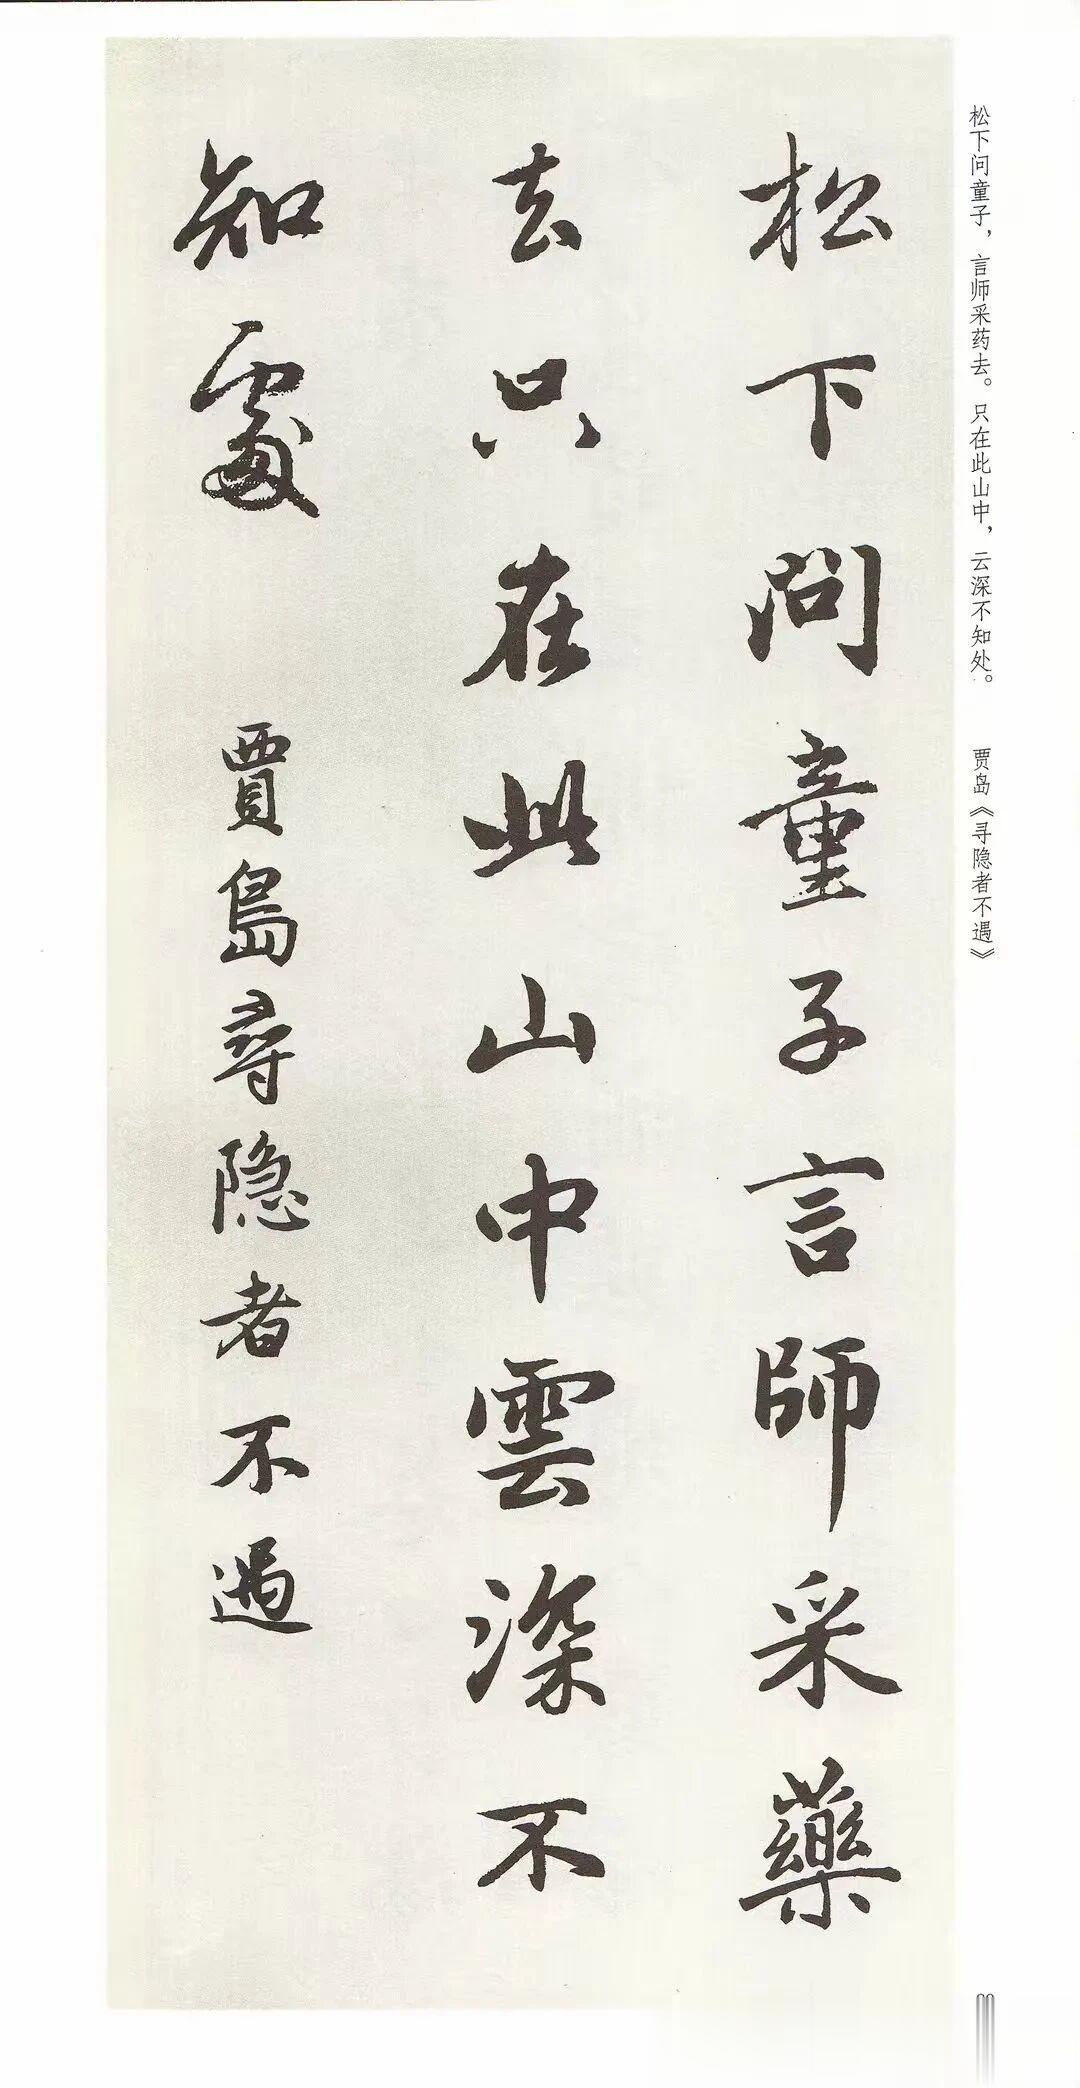 松下问童子，言师采药去。只在此山中，云深不知处。 贾岛《寻隐者不遇》
松下问童子言師采藥
去只在此山中雲深不
知處 賈島尋隐者不遇